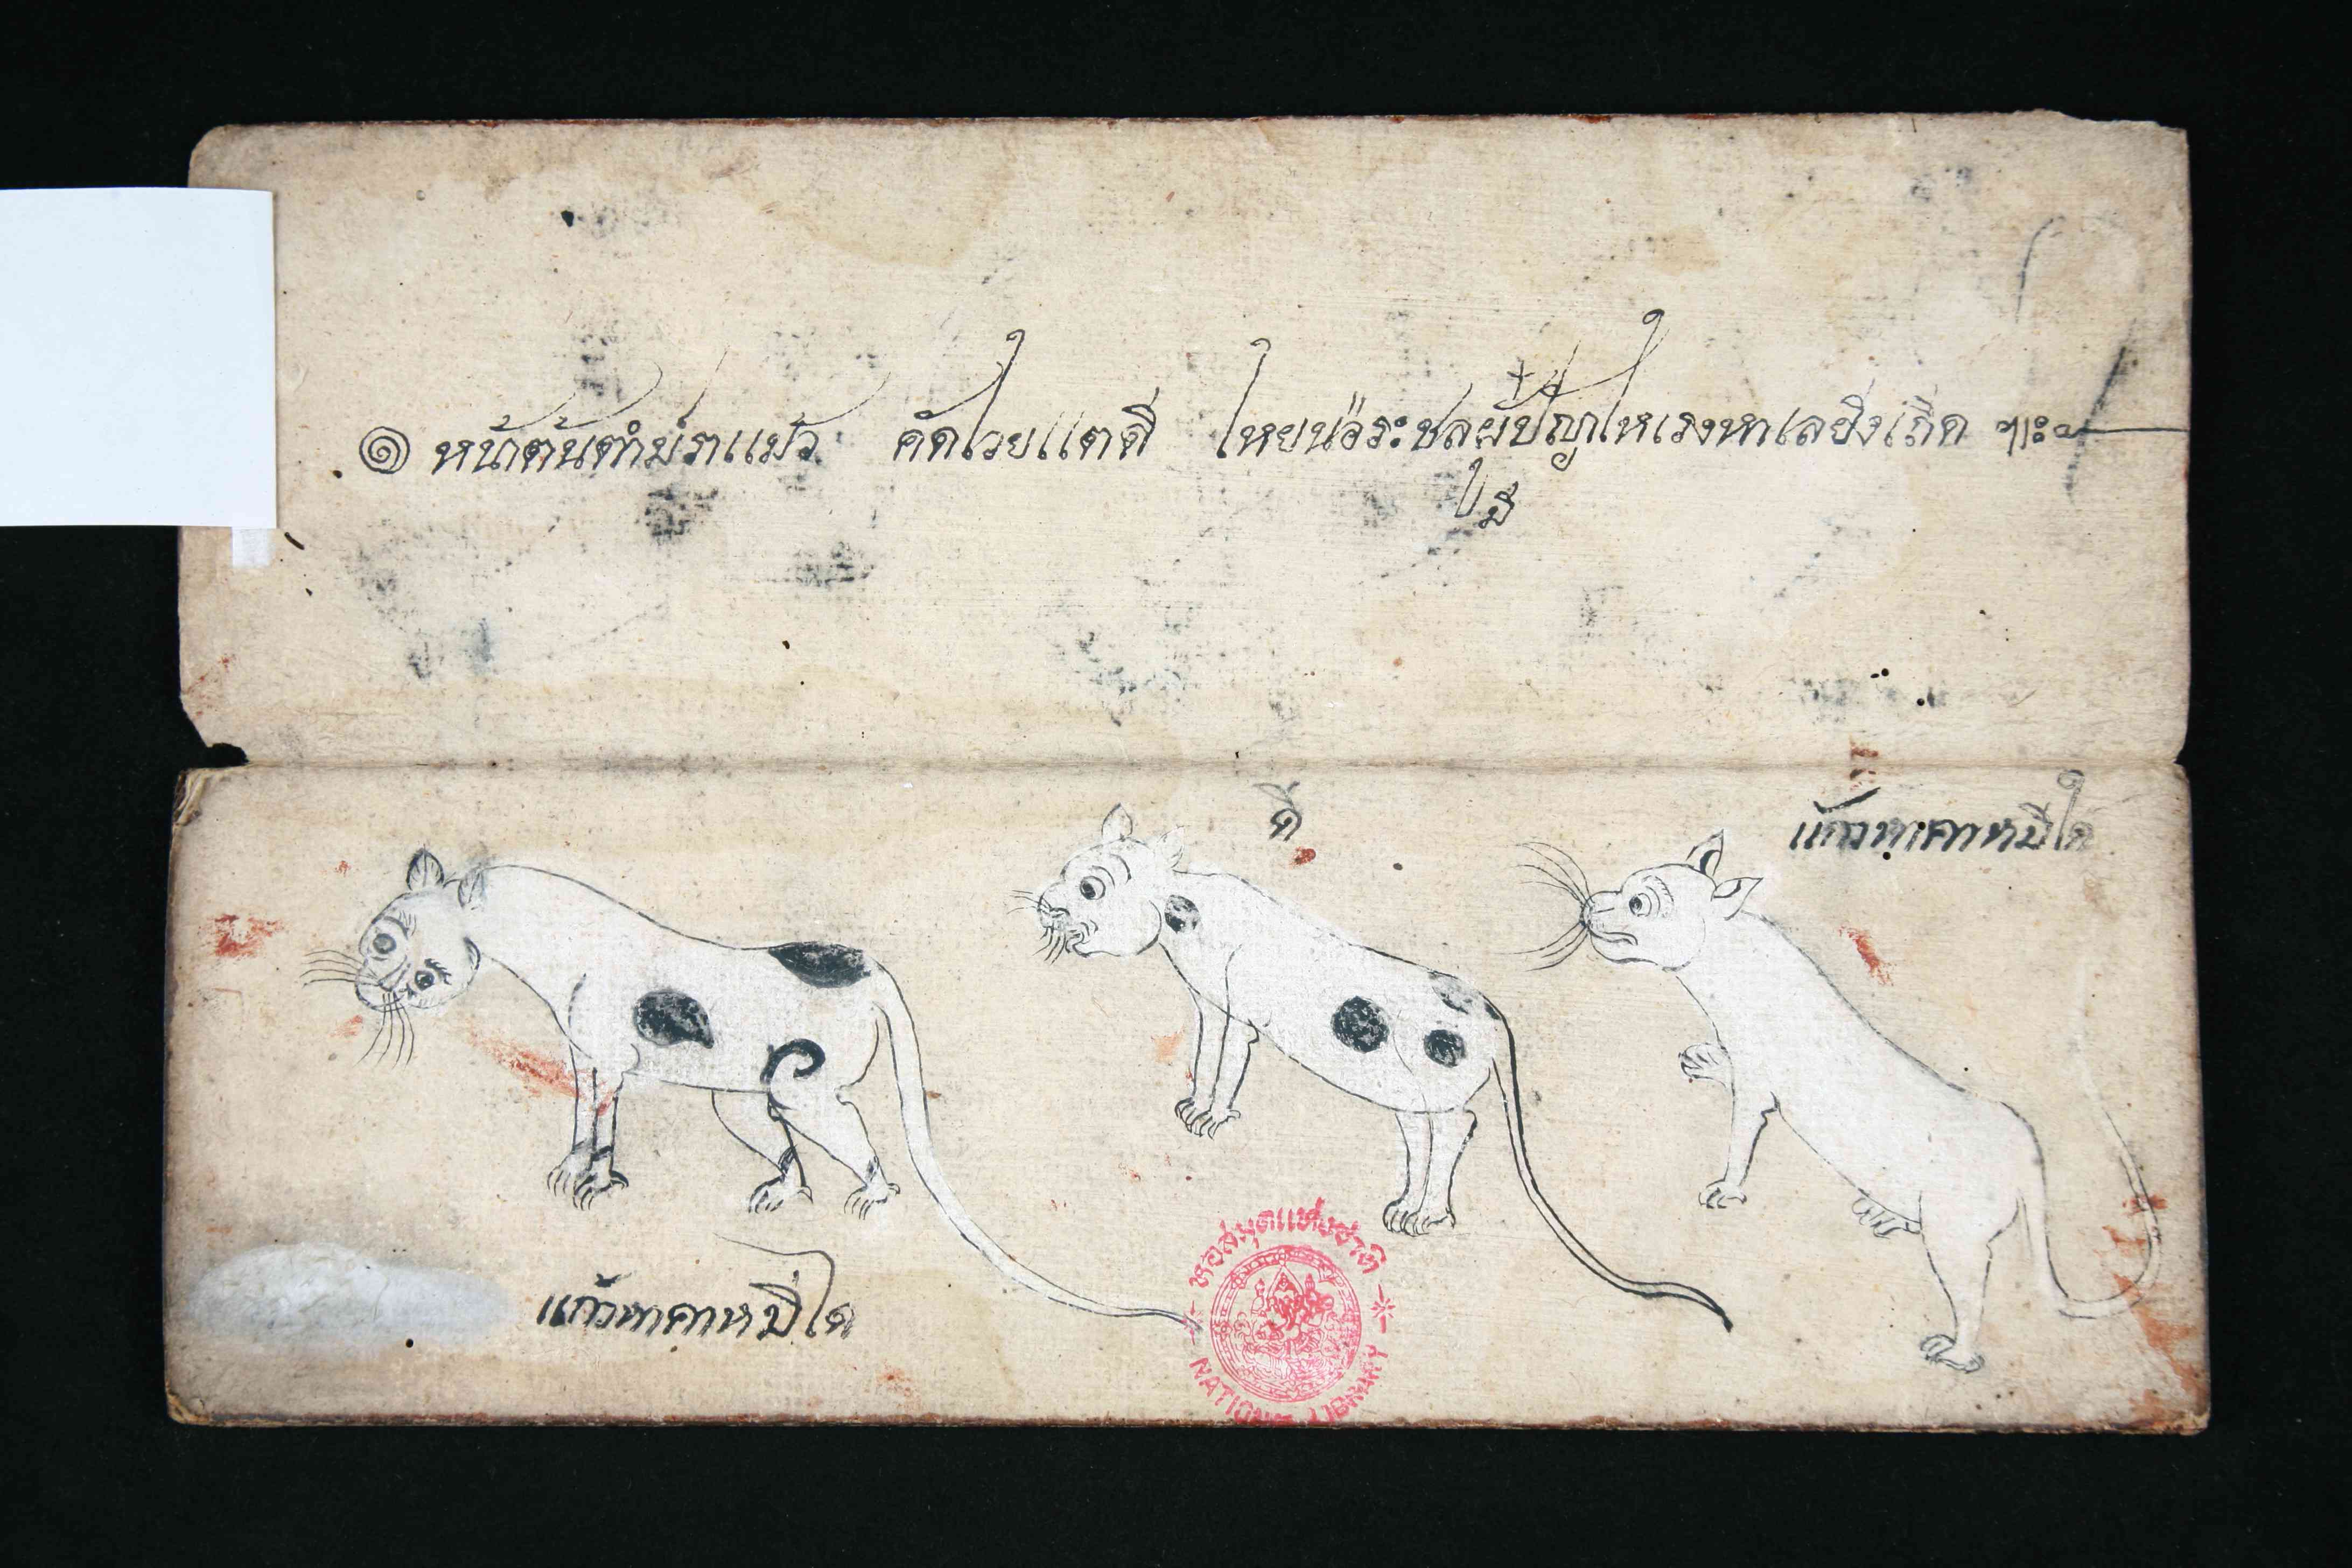 ๑ หน้าต้นตำม่ราแม้ว คัดไวยแตดี่ ไหยน่อระชลผู้ปัญญไหเรงหาเลยิ่งเถิด ฯะ
ใมี
ดี่
แก้วหาคาหมีได
แก้วหาคาหมีได
หอสมุดแห่งชาติ
NATIONAL LIBRARY